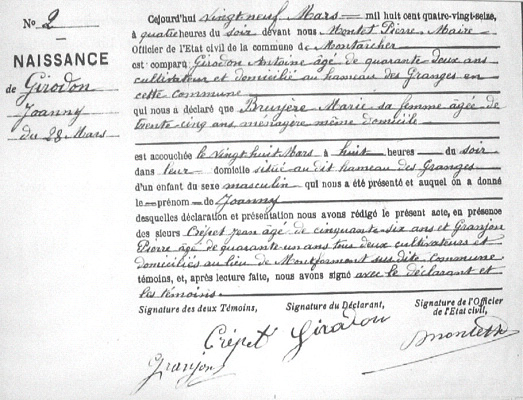 No 2
NAISSANCE
de Girodon
Joanny
du 28 Mars
Cejourd'hui vingt neuf Mars mil huit cent quatre-vingt-seize,
à quatre heures du soir devant nous Montet Pierre, Maire
Officier de l'Etat civil de la commune de Montarcher
est comparu Girodon Antoine âgé de quarante deux ans
cultivateur et domicilié au hameau des Granges en
cette commune
qui nous a déclaré que Bruyère Marie sa femme âgée de
trente cinq ans ménagère même domicile
est accouchée le vingt huit Mars à huit heures du soir
dans leur domicile situé au dit hameau des Granges
d'un enfant du sexe masculin qui nous a été présenté et auquel on a donné
le prénom de Joanny
desquelles déclaration et présentation nous avons rédigé le présent acte, en présence
des sieurs Crépet Jean âgé de cinquante-six ans et Granjon
Pierre âgé de quarante un ans tous deux cultivateurs et
domiciliés au lieu de sus dite commune
témoins, et, après lecture faite, nous avons signé avec le déclarant et
les témoins
Signature des deux Témoins, Signature du Déclarant, Signature de l'Officier
de l'Etat civil,
Crépet Girodon Montet
Granjon